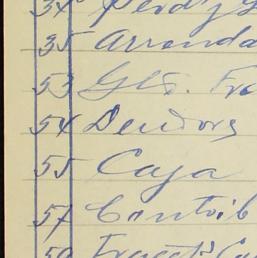 35 Arrenda
53 Gts. Fra
54 Deudores
55 Caja
57 Contrib